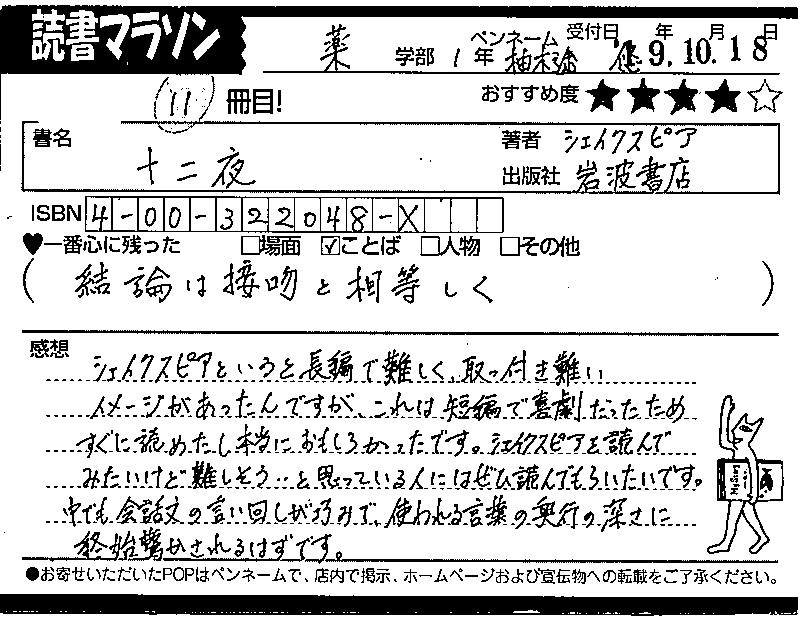 読書マラソン
薬 学部 1 年 ペンネーム 柚木 受付日 年 月 日
19.10.18
11 冊目!
おすすめ度 ★★★★☆
書名 十二夜
著者 シェイクスピア
出版社 岩波書店
ISBN 4-00-322048-X
♥一番心に残った □場面 ☑ことば □人物 □その他
(結論は接吻と相等しく)
感想
シェイクスピアというと長編で難しく、取っ付き難い
イメージがあったんですが、これは短編で喜劇だったため
すぐに読めたし本当におもしろかったです。シェイクスピアを読んで
みたいけど難しそう…と思っている人にはぜひ読んでもらいたいです。
中でも会話文の言い回しが巧みで、使われる言葉の奥行の深さに
終始驚かされるはずです。
●お寄せいただいたPOPはペンネームで、店内で掲示、ホームページおよび宣伝物への転載をご了承ください。